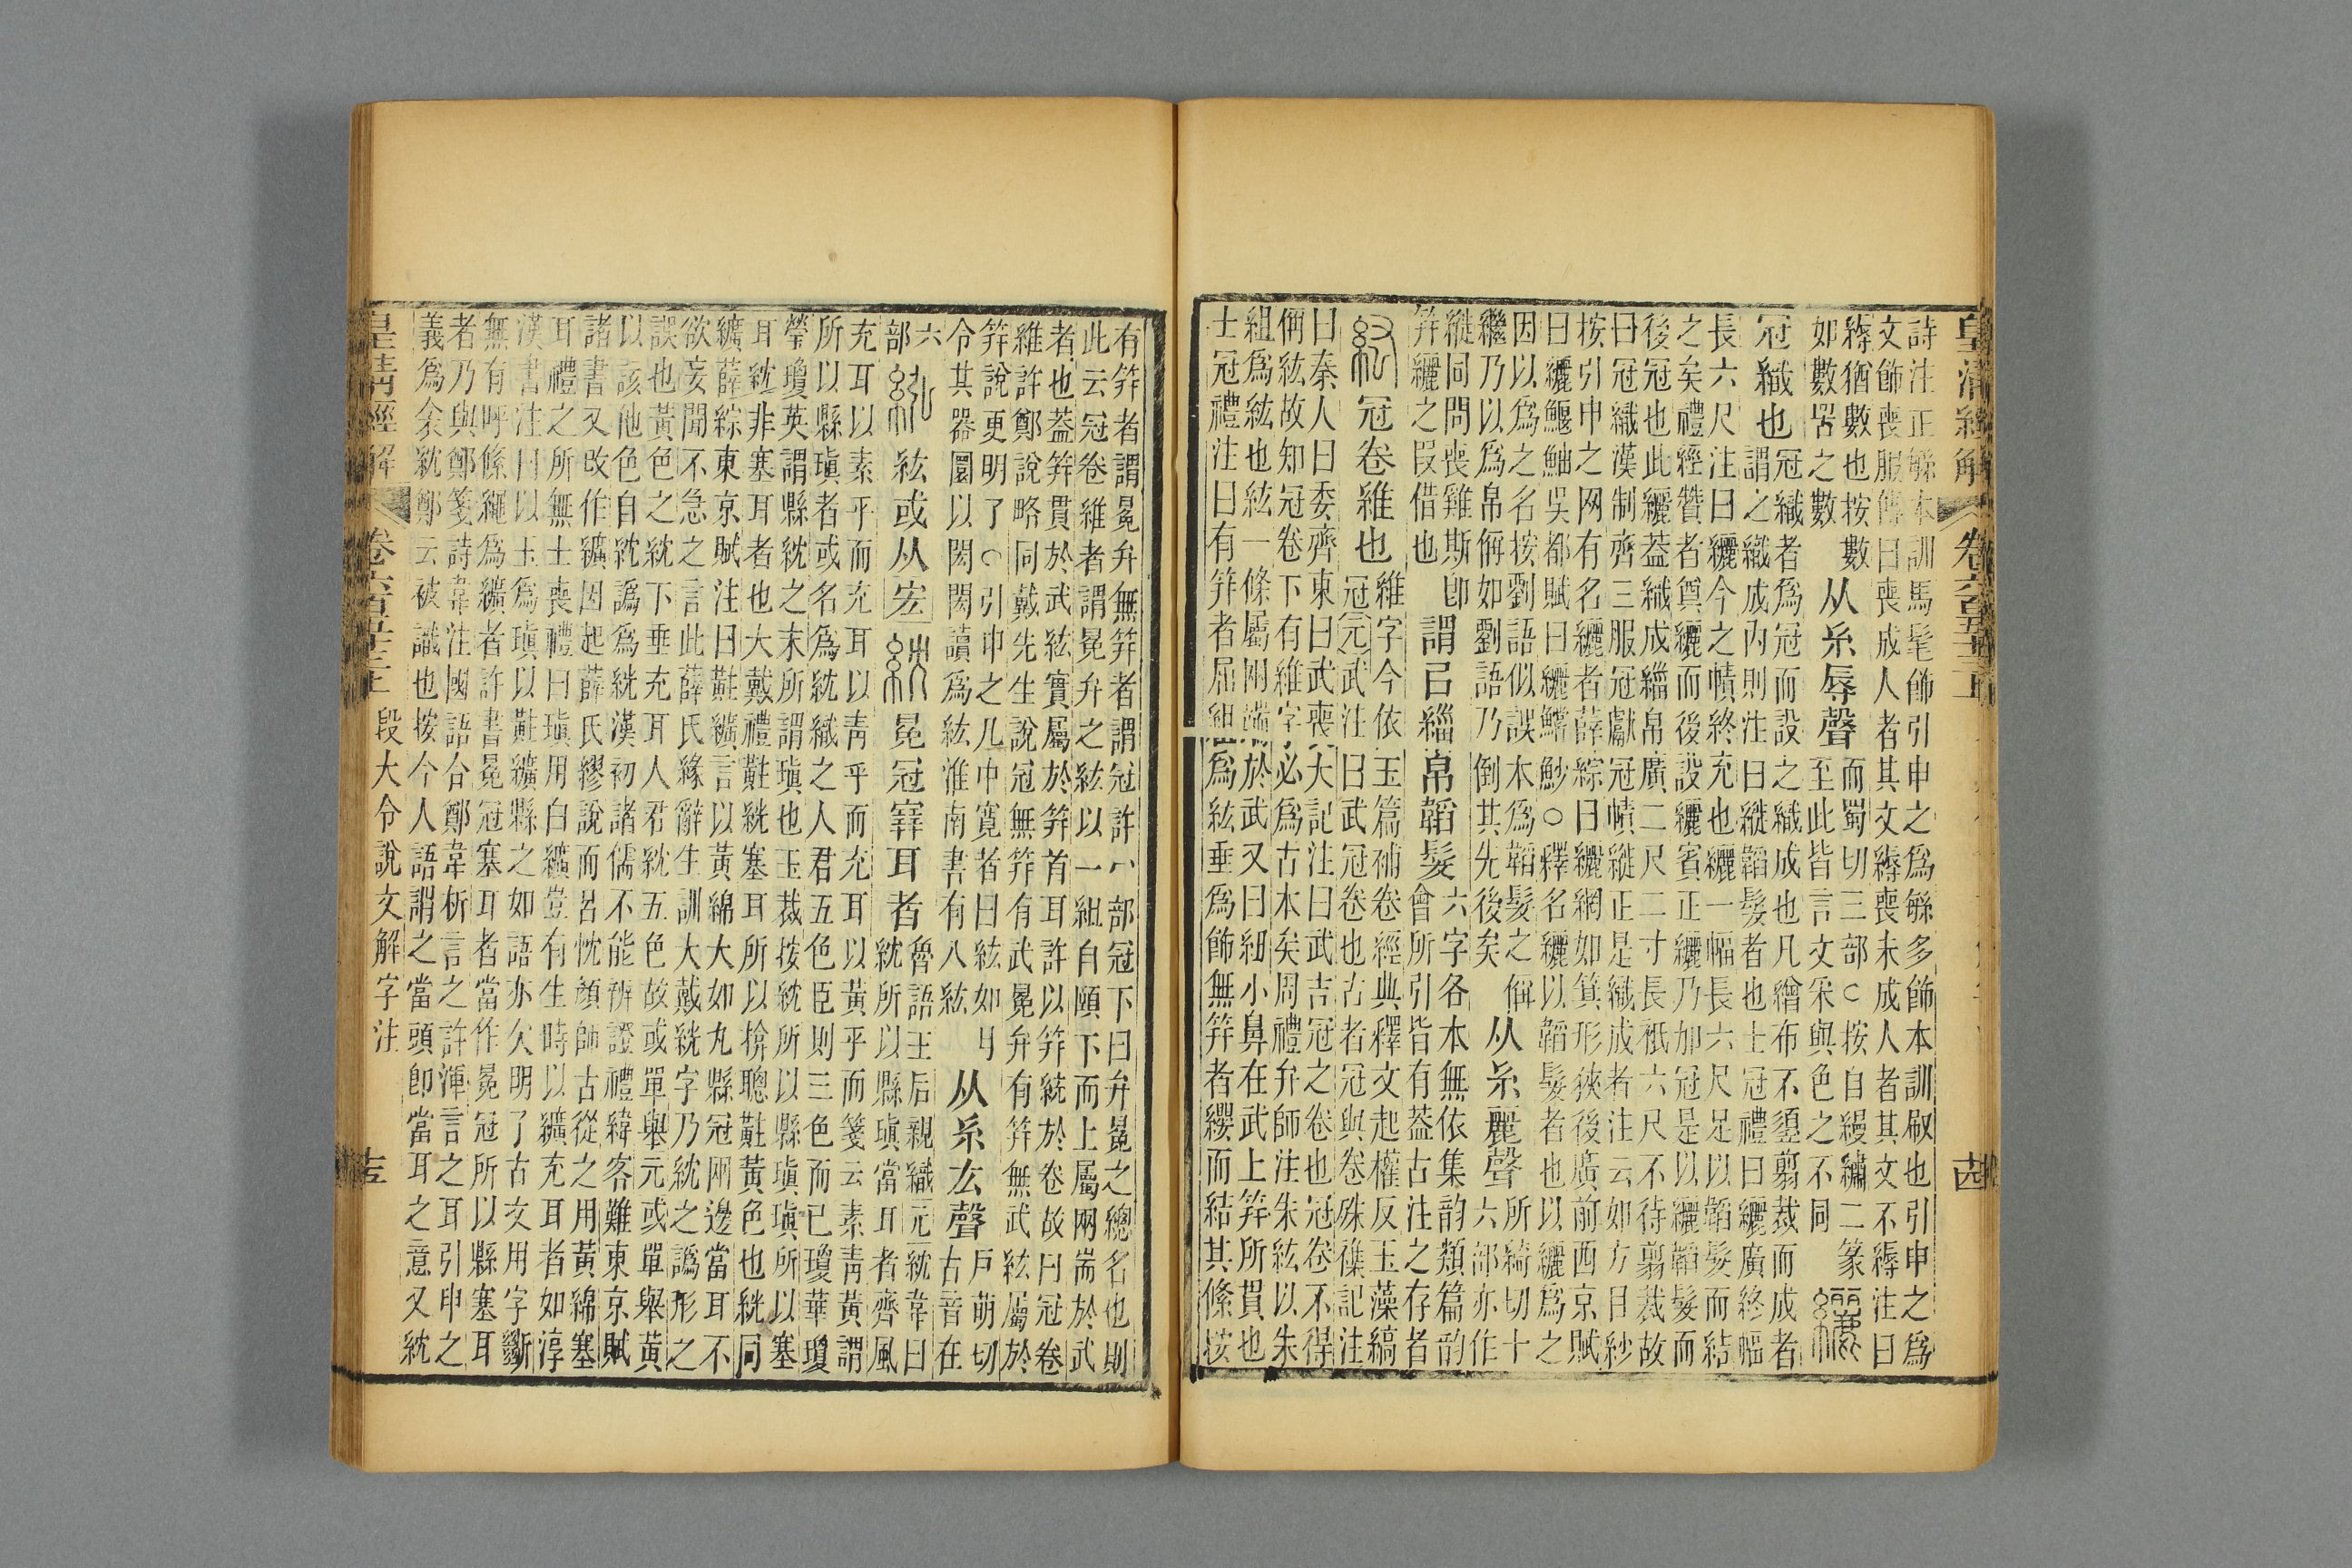 皇清經解 卷六百五十三上 十四
詩注正緐本訓馬髦飾引申之爲緐多飾本訓㕞也引申之爲
文飾喪服傳曰喪成人者其文縟喪未成人者其文不縟注曰
縟猶數也按數
如數罟之數
从糸辱聲
而蜀切三部○按自縵繡二篆
至此皆言文采與色之不同
纚
冠織也
冠織者爲冠而設之織成也凡繒布不須翦裁而成者
謂之織成內則注曰縰韜髮者也士冠禮曰纚廣終幅
長六尺注曰纚今之幘終充也纚一幅長六尺足以韜髮而結
之矣禮經贊者奠纚而後設纚賓正纚乃加冠是以纚韜髮而
後冠也此纚葢織成緇帛廣二尺二寸長祇六尺不待翦裁故
曰冠織漢制齊三服冠獻冠幘縰正是織成者注云如方目紗
按引申之网有名纚者薛綜曰纚網如箕形狹後廣前西京賦
曰纚鰋鮋吳都賦曰纚鱨魦○釋名纚以韜髮者也以纚爲之
因以爲之名按劉語似誤本爲韜髮之偁
繼乃以爲帛偁如劉語乃倒其先後矣
从糸麗聲
所綺切十
六部亦作
縰同問喪雞斯卽
筓纚之叚借也
謂㠯緇帛韜髮
六字各本無依集韵類篇韵
會所引皆有葢古注之存者
紘
冠卷維也
維字今依玉篇補卷經典釋文起權反玉藻縞
冠元武注曰武冠卷也古者冠與卷殊襍記注
曰秦人曰委齊東曰武喪大記注曰武吉冠之卷也冠卷不得
偁紘故知冠卷下有維字必爲古本矣周禮弁師注朱紘以朱
組爲紘也紘一條屬兩端於武又曰紐小鼻在武上筓所貫也
士冠禮注曰有筓者屈組爲紘垂爲飾無筓者纓而結其絛按
有筓者謂冕弁無筓者謂冠許冖部冠下曰弁冕之總名也則
此云冠卷維者謂冕弁之紘以一組自頤下而上屬兩耑於武
者也葢筓貫於武紘實屬於筓首耳許以筓統於卷故曰冠卷
維許鄭說略同戴先生說冠無筓有武冕弁有筓無武紘屬於
筓說更明了○引申之凡中寬者曰紘如月
令其器圜以閎閎讀爲紘淮南書有八紘
从糸厷聲
戶萌切
古音在
六
部
紘或从宏
紞
冕冠塞耳者
魯語王后親織元紞韋曰
紞所以縣瑱當耳者齊風
充耳以素乎而充耳以靑乎而充耳以黃乎而箋云素靑黃謂
所以縣瑱者或名爲紞織之人君五色臣則三色而已瓊華瓊
瑩瓊英謂縣紞之末所謂瑱也玉裁按紞所以縣瑱瑱所以塞
耳紞非塞耳者也大戴禮黈絖塞耳所以揜聰黈黃色也絖同
纊薛綜東京賦注曰黈纊言以黃綿大如丸縣冠兩邊當耳不
欲妄聞不急之言此薛氏緣辭生訓大戴絖字乃紞之譌形之
誤也黃色之紞下垂充耳人君紞五色故或單舉元或單舉黃
以該他色自紞譌爲絖漢初諸儒不能辨證禮緯客難東京賦
諸書又改作纊因起薛氏繆說而呂忱顏師古從之用黃綿塞
耳禮之所無士喪禮曰瑱用白纊豈有生時以纊充耳者如淳
漢書注曰以玉爲瑱以黈纊縣之如語亦欠明了古文用字斷
無有呼絛繩爲纊者許書冕冠塞耳者當作冕冠所以縣塞耳
者乃與鄭箋詩韋注國語合鄭韋析言之許渾言之耳引申之
義爲余紞鄭云被識也按今人語謂之當頭卽當耳之意又紞
皇清經解 卷六百五十三上 段大令說文解字注 十五